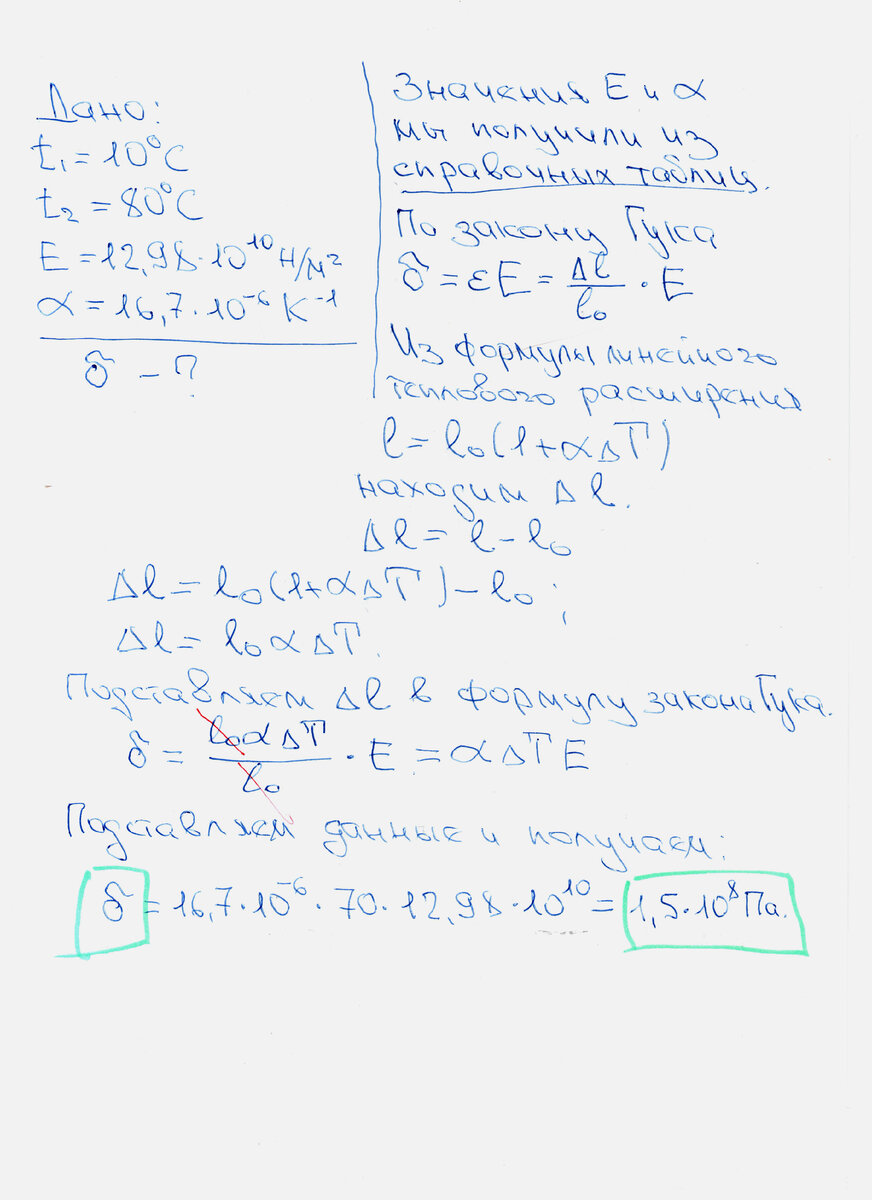 Дано:
t₁ = 10°C
t₂ = 80°C
E = 12,98·10¹⁰ Н/м²
α = 16,7·10⁻⁶ K⁻¹
δ – ?
Значения E и α
мы получили из
справочных таблиц.
По закону Гука
δ = εE = Δl/l₀ · E
Из формулы линейного
теплового расширения
l = l₀(1+αΔT)
находим Δl.
Δl = l – l₀
Δl = l₀(1+αΔT) – l₀;
Δl = l₀αΔT.
Подставляем Δl в формулу закона Гука.
δ = l₀αΔT/l₀ · E = αΔTE
Подставляем данные и получаем:
δ = 16,7·10⁻⁶·70·12,98·10¹⁰ = 1,5·10⁸ Па.